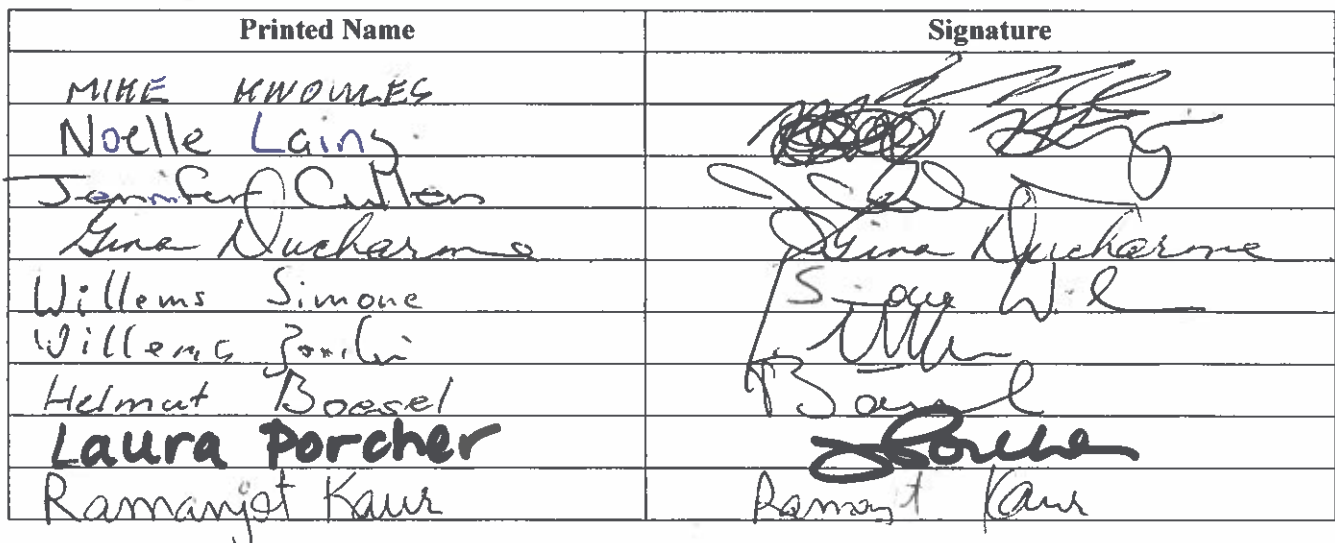 Printed Name Signature
MIKE KNOWLES
Noelle Laing
Jennifer Cullen
Gina Ducharme Gina Ducharme
Willems Simone Simone
Willems
Helmut Boesel Boesel
Laura Porcher LPorcher
Ramanjot Kaur Ramanjot Kaur